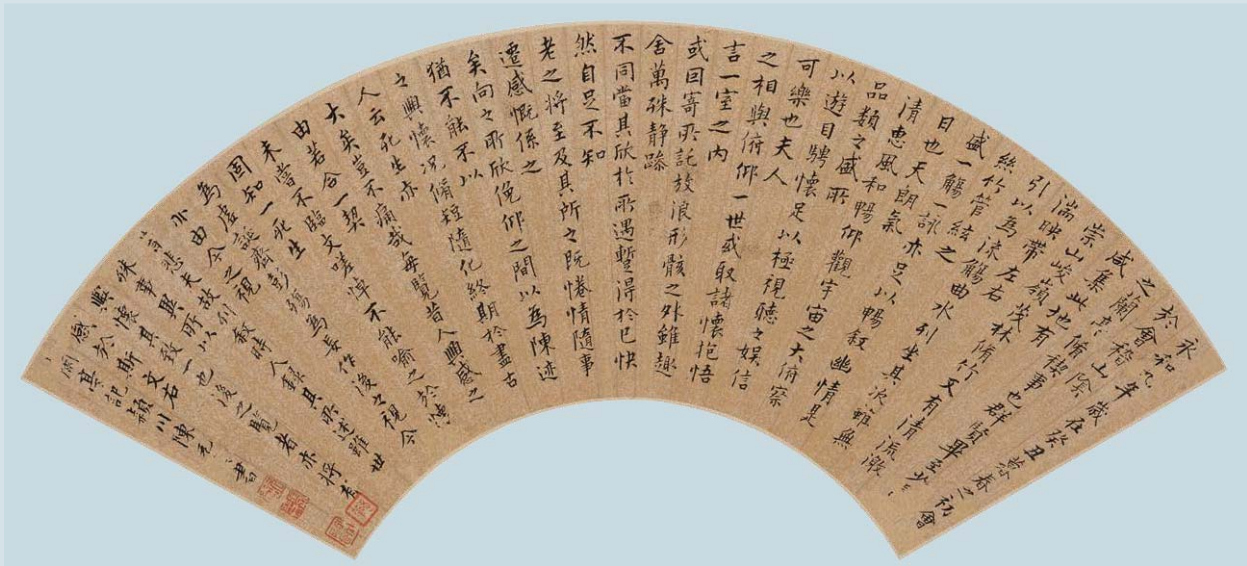 永和九年歲在癸丑暮春之初會
於會稽山陰
之蘭亭脩禊事也群賢畢至少長
咸集此地有
崇山峻嶺茂林脩竹又有清流激
湍映帶左右
引以為流觴曲水列坐其次雖無
絲竹管絃之
盛一觴一詠亦足以暢敘幽情是
日也天朗氣
清惠風和暢仰觀宇宙之大俯察
品類之盛所
以遊目騁懷足以極視聽之娛信
可樂也夫人
之相與俯仰一世或取諸懷抱悟
言一室之內
或因寄所託放浪形骸之外雖趣
舍萬殊靜躁
不同當其欣於所遇暫得於己快
然自足不知
老之將至及其所之既惓情隨事
遷感慨係之
矣向之所欣俛仰之間以為陳迹
猶不能不以
之興懷況脩短隨化終期於盡古
人云死生亦
大矣豈不痛哉每覽昔人興感之
由若合一契
未嘗不臨文嗟悼不能喻之於懷
固知一死生
為虛誕齊彭殤為妄作後之視今
亦由今之視
昔悲夫故列敘時人錄其所述雖世
殊事異所以
興懷其致一也後之覽者亦將有
感於斯文右
蘭亭記潁川陳元書